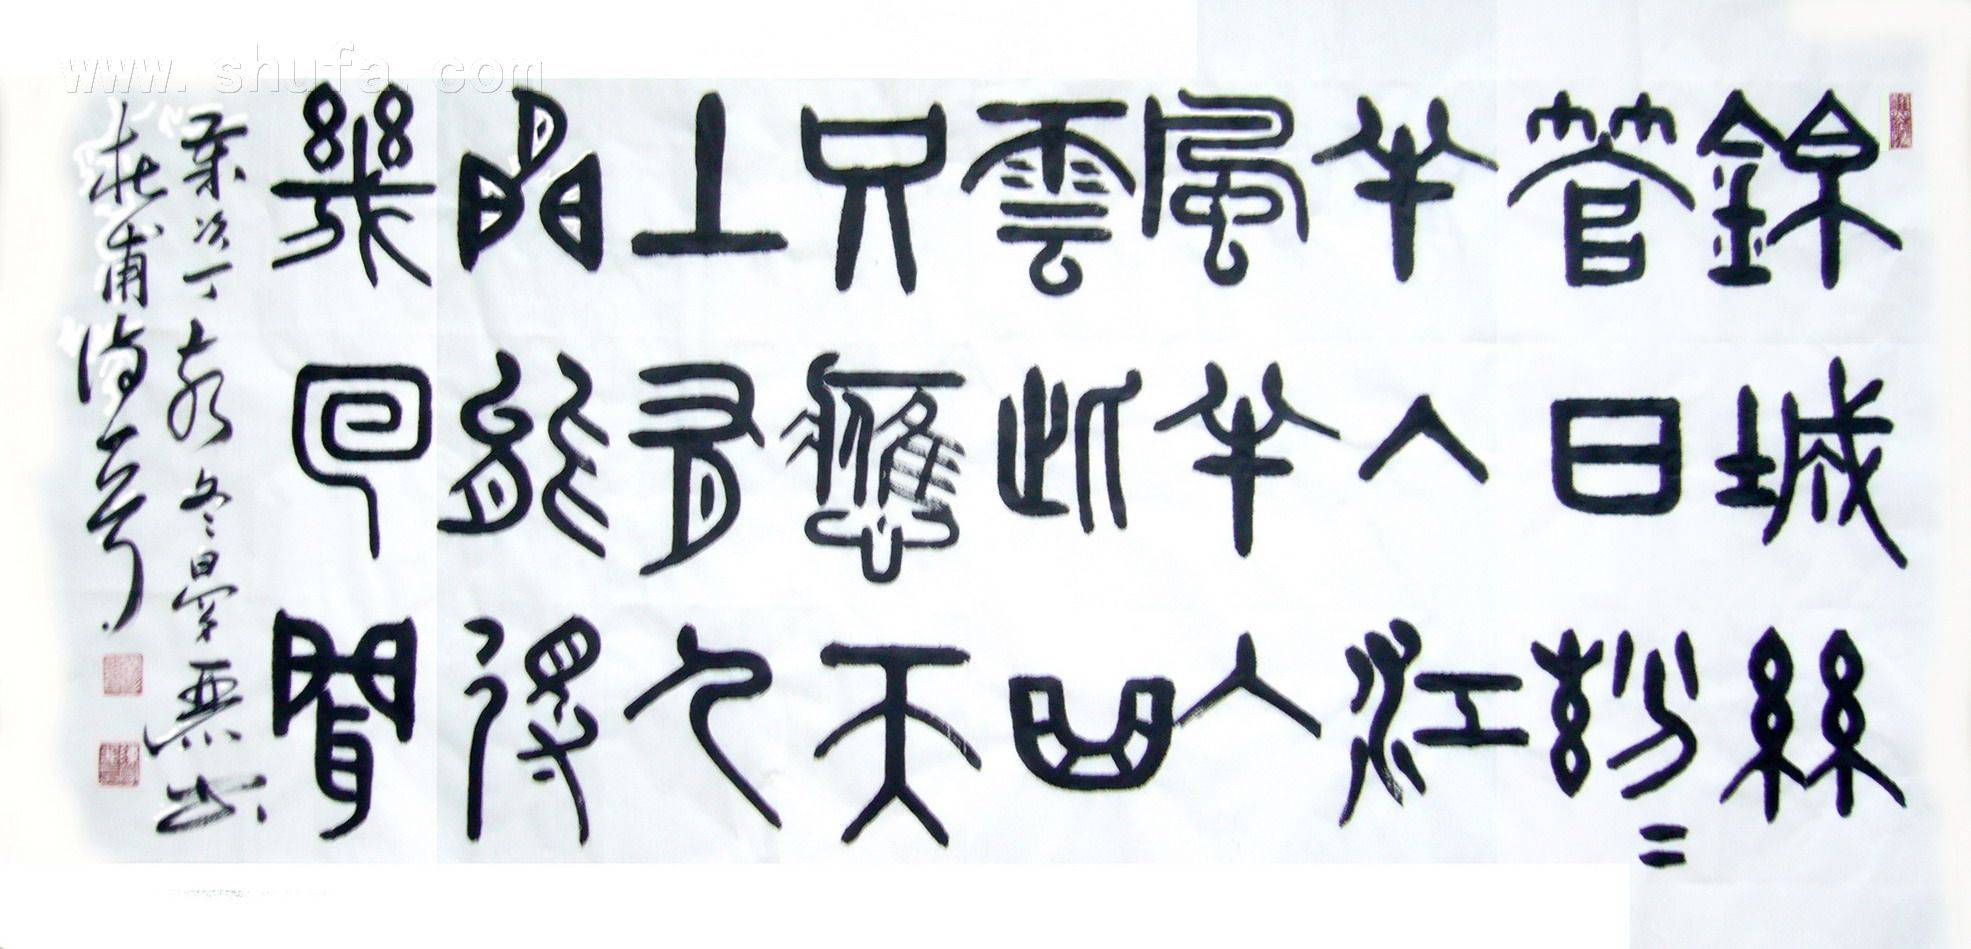 www.shufa.com
錦城絲
管日紛〻
半入江
風半入
雲此曲
只應天
上有人
間能得
幾回聞
歲次丁亥冬日
杜甫詩一首